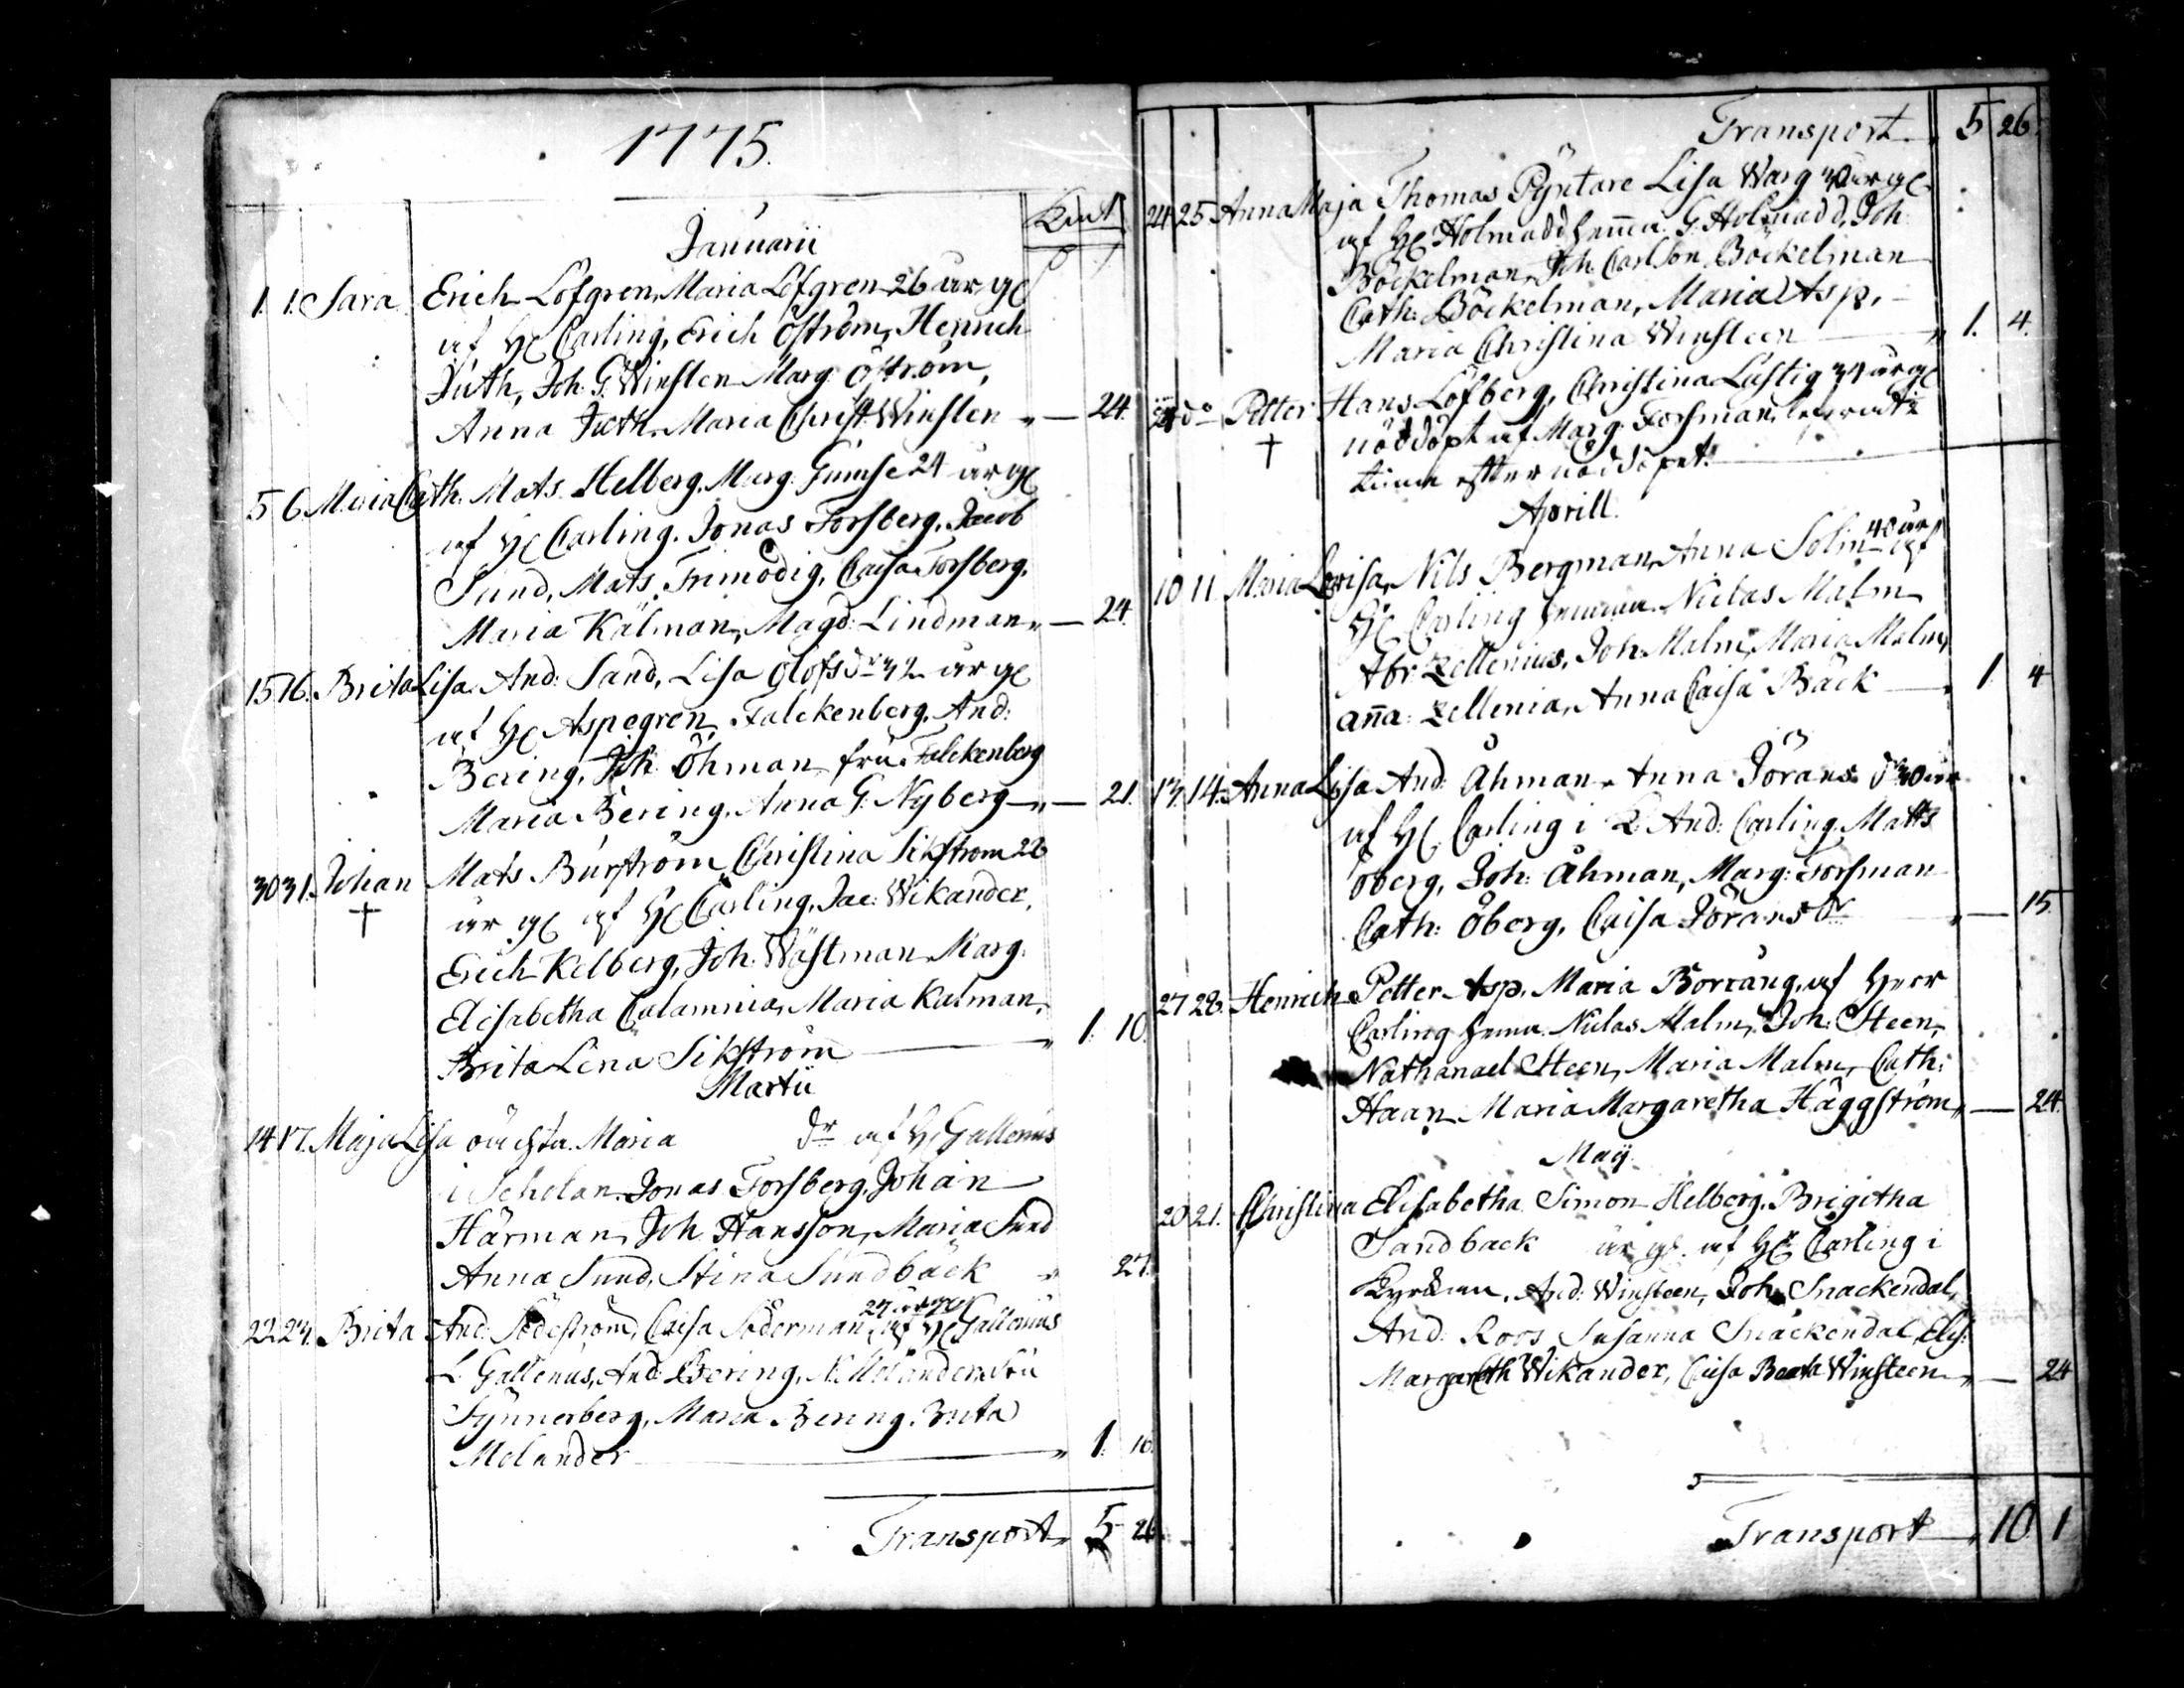 1775.
Januarii
1. 1. Sara Erich Löfgren, Maria Löfgren 26 år gl
af H Carling, Erich Öström, Henrich
Juth, Joh. G. Winsten Marg. Öström,
Anna Juth, Maria Christ. Winsten „ — 24.
5 6. Maria Cath. Mats Helberg. Marg. Gumse 24 år gl
af H Carling. Jonas Forsberg, Jacob
Sund, Mats Frimodig, Caisa Forsberg,
Maria Kälman, Magd: Lindman „ — 24.
15 16. Brita Lisa And: Sand, Lisa Olofsdr 32 år gl
af H Aspegren Falckenberg, And:
Bering, Joh Öhman fru Falckenberg
Maria Bering. Anna G. Nyberg — „ — 21.
30 31. Johan Mats Burström, Christina Sikström 22
† år gl af H Carling, Jac: Wikander,
Erich Kelberg, Joh: Wästman Marg.
Elisabetha Calamnia, Maria Kalman,
Brita Lena Sikström „ 1. 10.
Martii
14 17. Maja Lisa oächta. Maria dr af H Gallenius
i Scholan. Jonas Forsberg, Johan
Härman, Joh Hansson, Maria Sund
Anna Sund, Stina Sundbäck „ 27.
22 23. Brita And: Söderström, Caisa Söderman 27 år gl af H Gallenius
L. Gallenius, And: Bering, N. Molander, Fru
Synnerberg, Maria Bering. Brita
Molander „ 1. 10.
Transport „ 5 26
Transport 5 26.
24 25 Anna Maja Thomas Pyntare Lisa Warg år gl
af H Holmudd G. Holmudd, Joh:
Böckelman, Joh. Carlson Böckelman
Cath: Böckelman, Maria Asp,
Maria Christina Winsteen „ 1. 4.
do Petter Hans Löfberg, Christina Lustig 34 år gl
† nöddöpt af Marg. Forsman,
efter nöddopet.
Aprill.
10 11 Maria Lovisa, Nils Bergman, Anna Solin 40 år af
H Carling hemma. Niclas Malm
Abr Zellenius, Joh: Malm, Maria Malm,
aña: Zellenia, Anna Caisa Bäck „ 1 4
13. 14. Anna Lisa And: Åhman Anna Jöransdr 30 år
af H Carling i K. And: Carling, Matts
Öberg, Joh: Åhman, Marg: Forsman
Cath: Öberg, Caisa Jöransdr „ — 15
27 28. Henrich Petter Asp, Maria Borrång, af Herr
Carling hemma. Niclas Malm, Joh: Steen,
Nathanael Steen, Maria Malm, Cath:
Haan Maria Margaretha Häggström „ — 24.
Maij
20 21. Christina Elisabetha Simon Helberg. Brigitha
Sandback år gl. af H Carling i
Kyrkan. And: Winsteen, Joh. Snackendal,
And: Roos Susanna Snäckendal, Elis:
Margareth Wikander, Caisa Beata Winsteen „ — 24
Transport „ 10 1